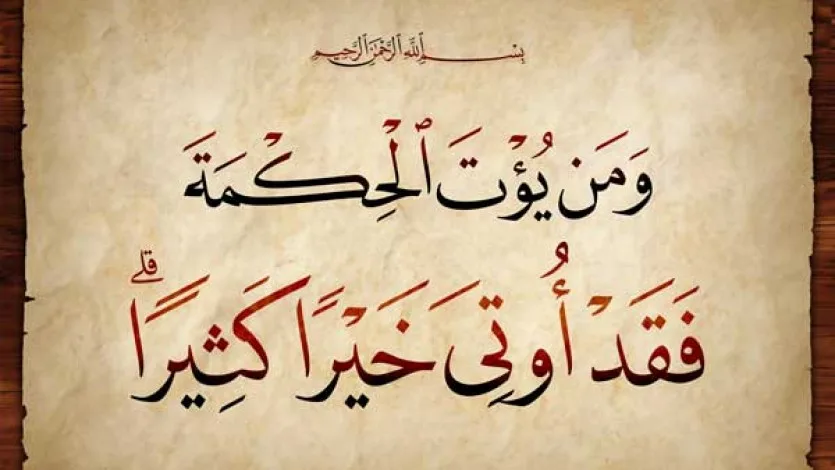 بِسْمِ اللَّهِ الرَّحْمَٰنِ الرَّحِيمِ
وَمَن يُؤْتَ ٱلْحِكْمَةَ
فَقَدْ أُوتِىَ خَيْرًا كَثِيرًا ۗ